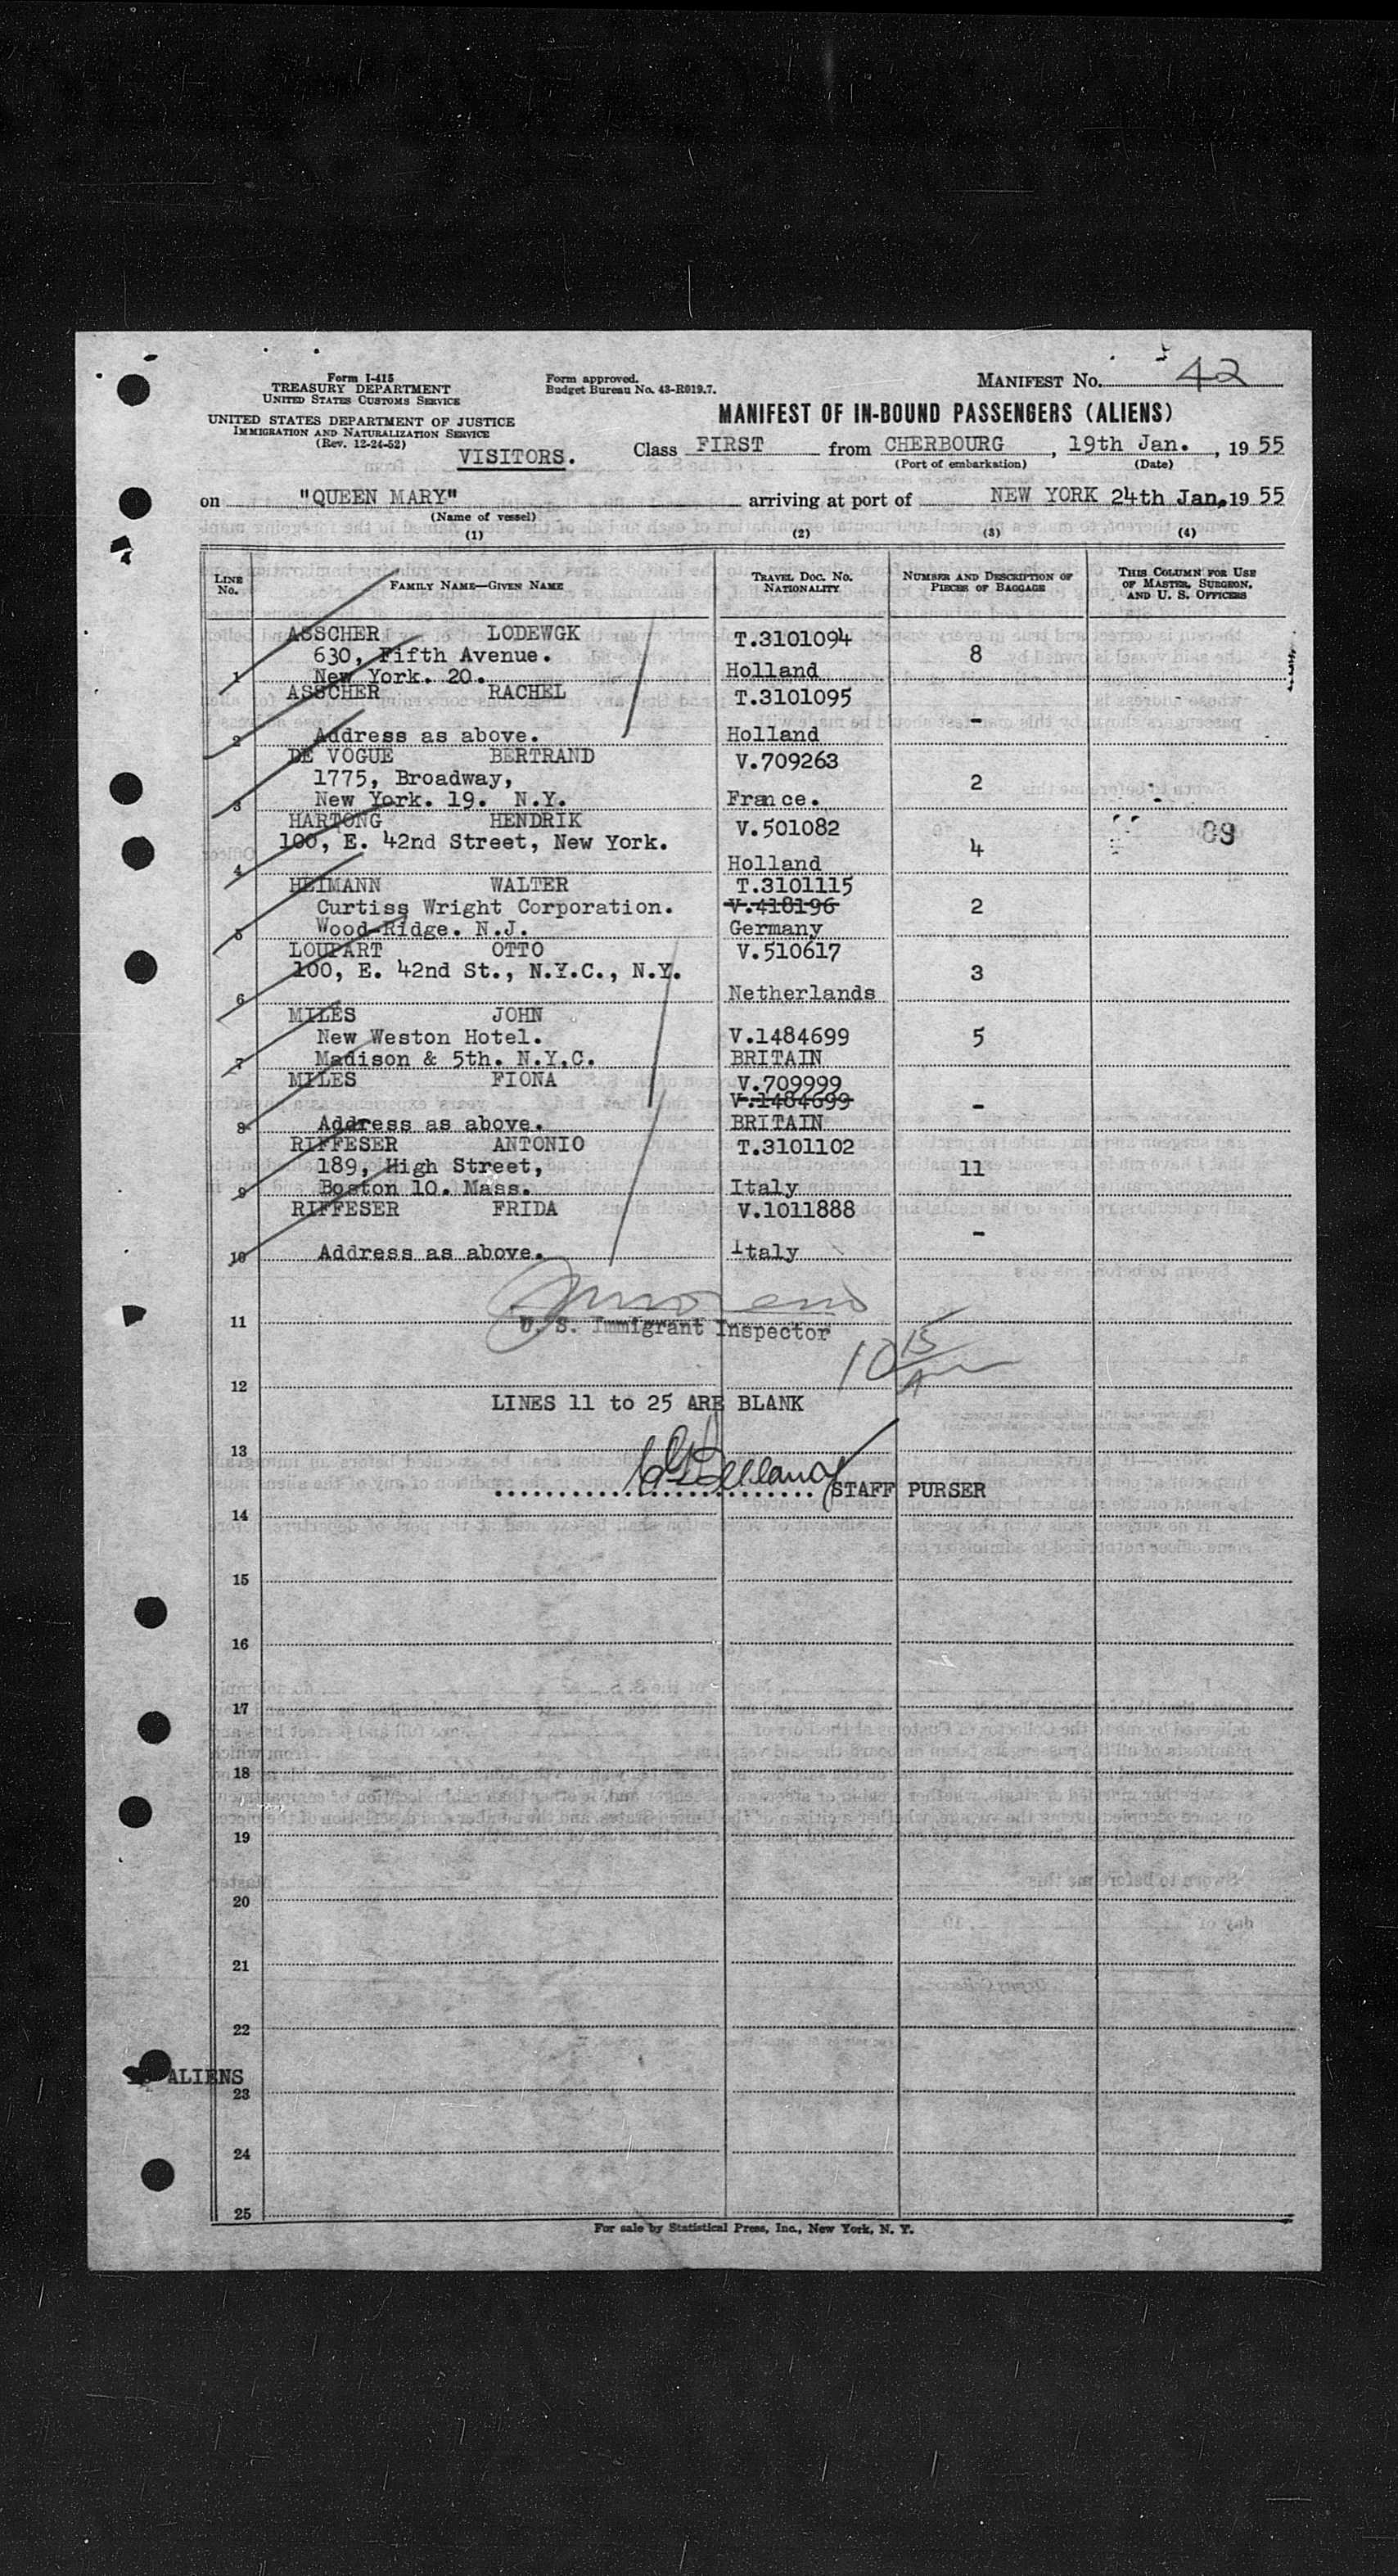 Form I-415
TREASURY DEPARTMENT
UNITED STATES CUSTOMS SERVICE
UNITED STATES DEPARTMENT OF JUSTICE
IMMIGRATION AND NATURALIZATION SERVICE
(Rev. 12-24-52)
VISITORS.
Form approved.
Budget Bureau No. 43-R019.7.
MANIFEST No. 42
MANIFEST OF IN-BOUND PASSENGERS (ALIENS)
Class FIRST from CHERBOURG, 19th Jan., 19 55
(Port of embarkation) (Date)
on "QUEEN MARY" arriving at port of NEW YORK 24th Jan, 19 55
(Name of vessel)
(1) (2) (3) (4)
LINE No. FAMILY NAME—GIVEN NAME TRAVEL DOC. NO. NATIONALITY NUMBER AND DESCRIPTION OF PIECES OF BAGGAGE THIS COLUMN FOR USE OF MASTER, SURGEON, AND U. S. OFFICERS
ASSCHER LODEWGK T.3101094
630, Fifth Avenue. 8
1 New York. 20. Holland
ASSCHER RACHEL T.3101095
-
2 Address as above. Holland
DE VOGUE BERTRAND V.709263
1775, Broadway, 2
3 New York. 19. N.Y. France.
HARTONG HENDRIK V.501082 89
100, E. 42nd Street, New York. 4
4 Holland
HEIMANN WALTER T.3101115
Curtiss Wright Corporation. V.418196 2
5 Wood-Ridge. N.J. Germany
LOUPART OTTO V.510617
100, E. 42nd St., N.Y.C., N.Y. 3
6 Netherlands
MILES JOHN
New Weston Hotel. V.1484699 5
7 Madison & 5th. N.Y.C. BRITAIN
MILES FIONA V.709999
V.1484699 -
8 Address as above. BRITAIN
RIFFESER ANTONIO T.3101102
189, High Street, 11
9 Boston 10. Mass. Italy
RIFFESER FRIDA V.1011888
-
10 Address as above. Italy
11 U. S. Immigrant Inspector
10 15 A
12
LINES 11 to 25 ARE BLANK
13
STAFF PURSER
14
15
16
17
18
19
20
21
22
ALIENS
23
24
25
For sale by Statistical Press, Inc., New York, N. Y.